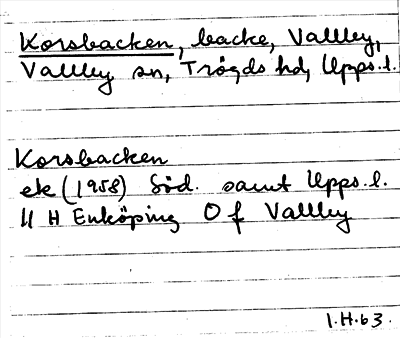 Korsbacken, backe, Vallby,
Vallby sn, Trögds hd, Upps. l.
Korsbacken
ek (1958) Söd. samt Upps. l.
11 H Enköping O f Vallby
1.H.63.